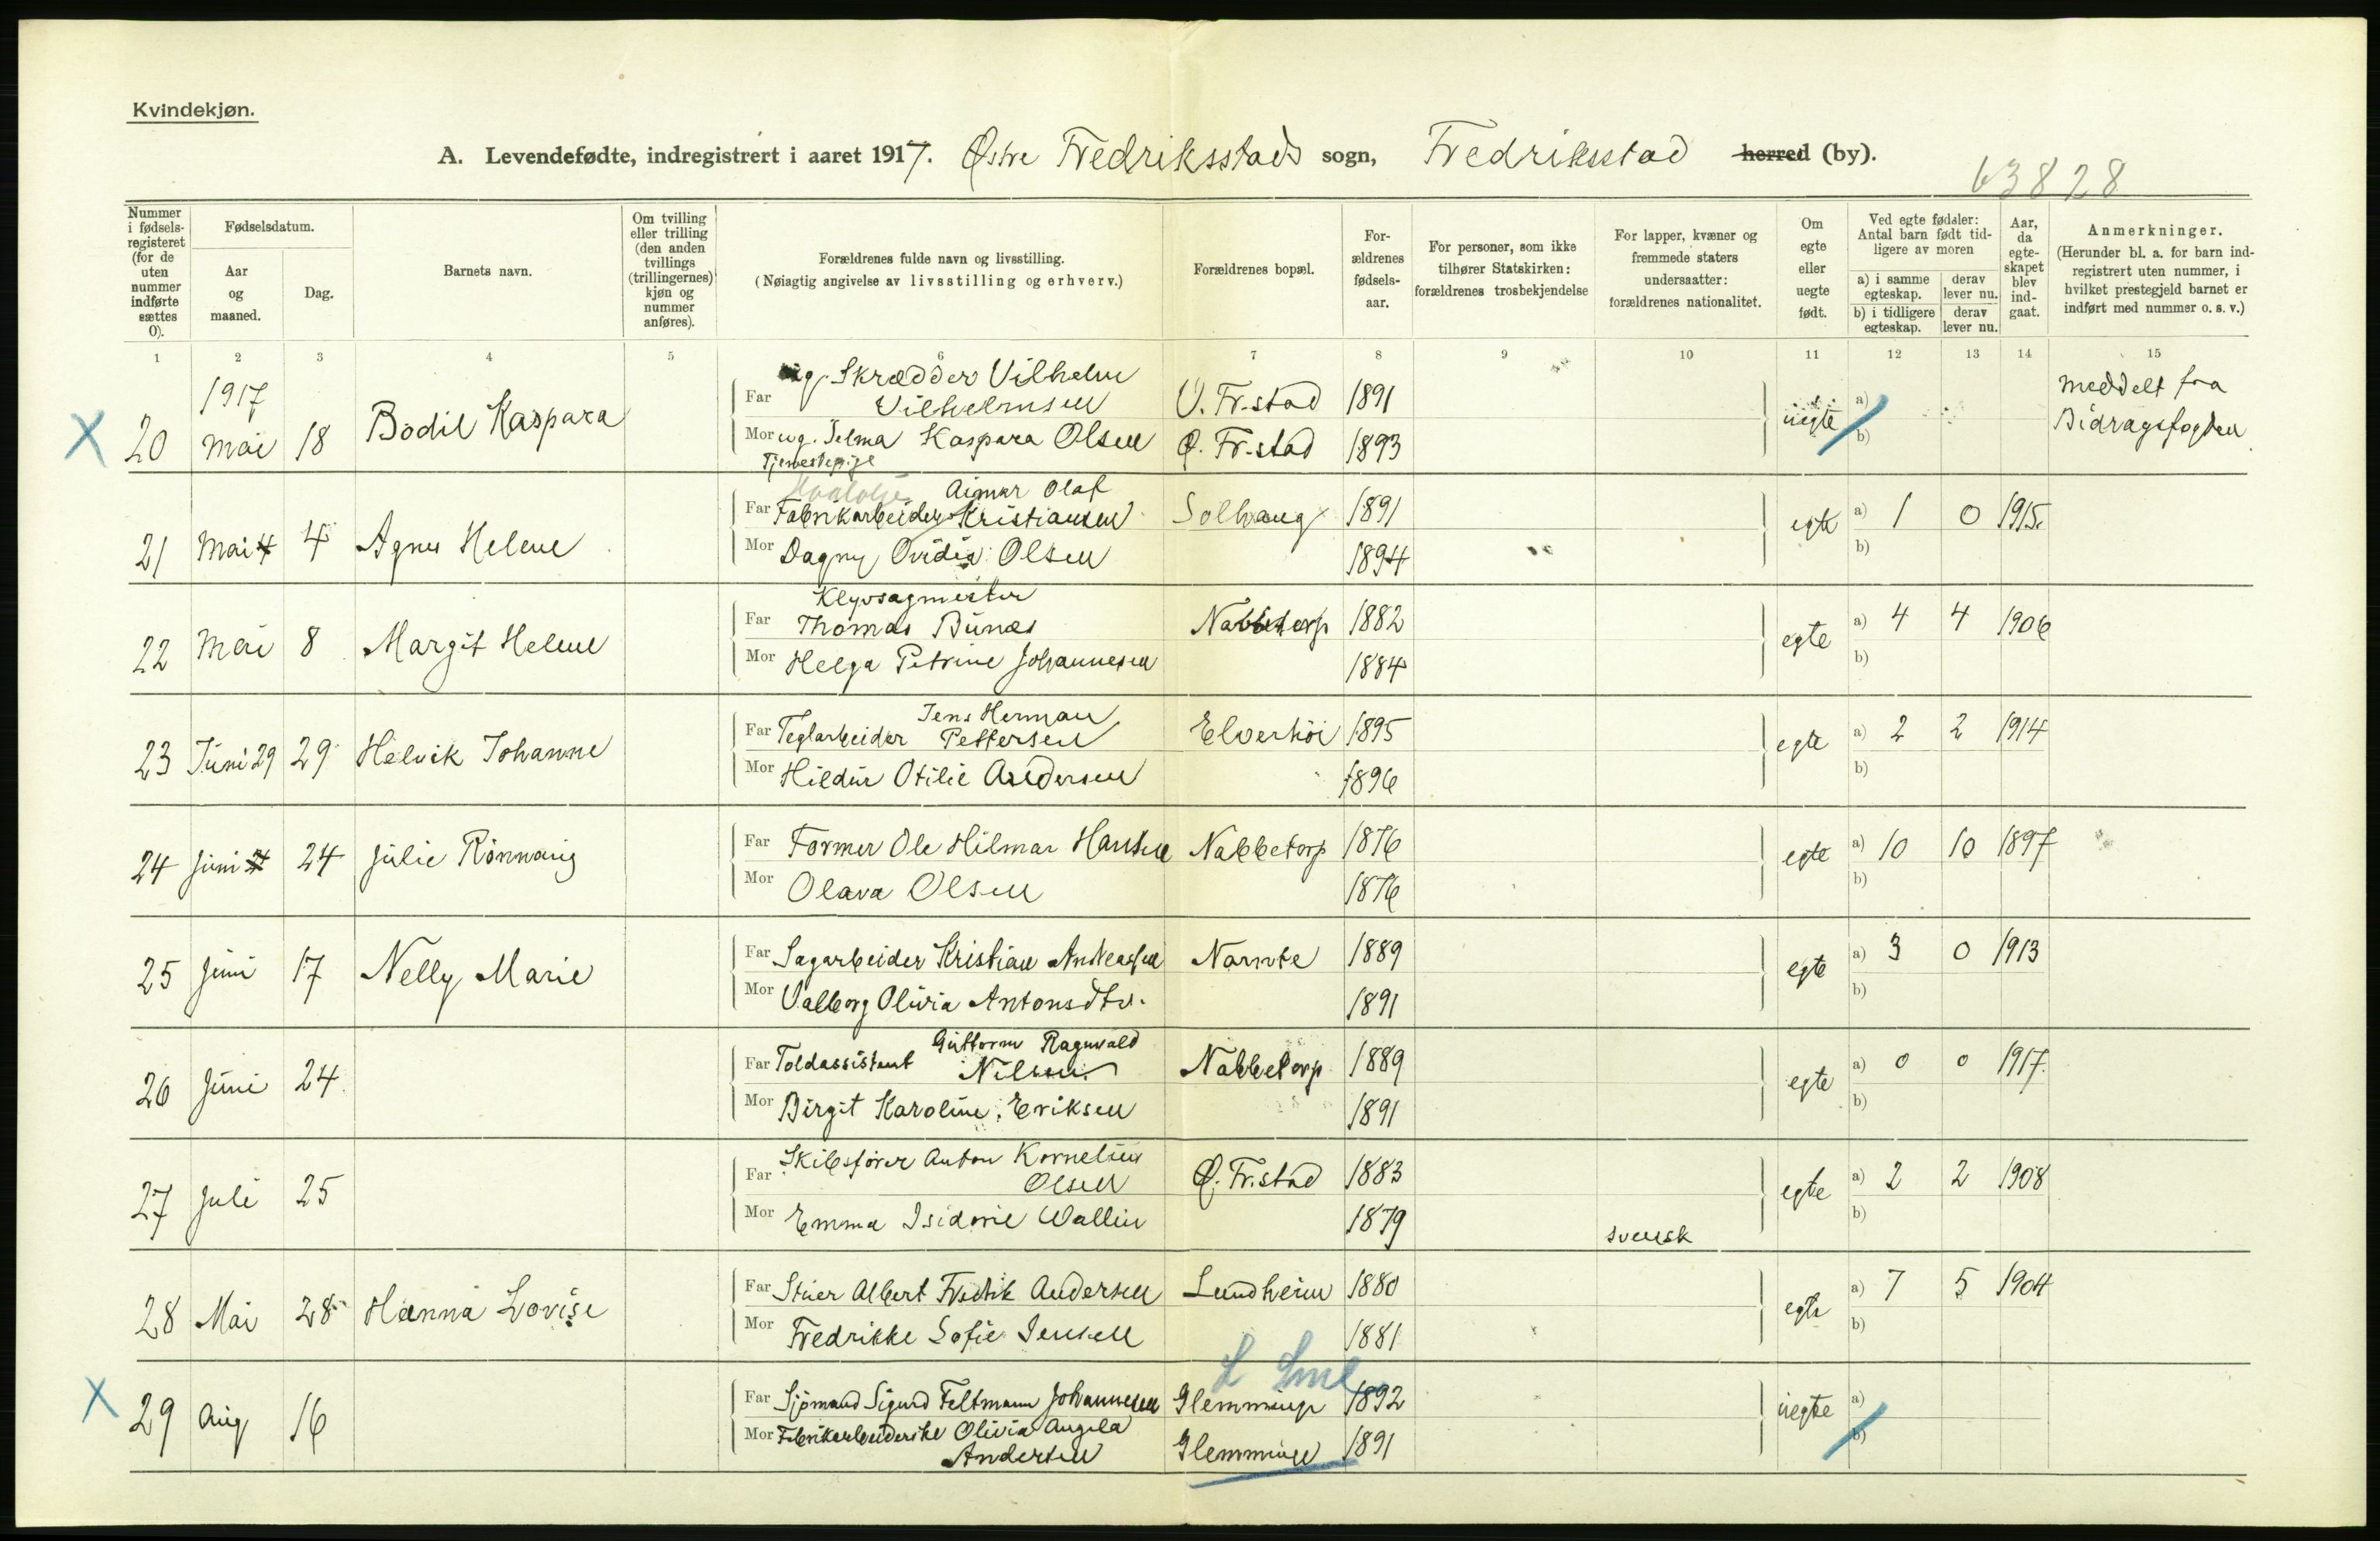 Kvindekjøn.
A. Levendefødte, indregistrert i aaret 1917. Østre Fredriksstads sogn, Fredriksstad herred (by).
63828
Nummer i fødsels-registeret (for de uten nummer indførte sættes 0).
Fødselsdatum.
Aar og maaned.
Dag.
Barnets navn.
Om tvilling eller trilling (den anden tvillings (trillingernes) kjøn og nummer anføres).
Forældrenes fulde navn og livsstilling.
(Nøiagtig angivelse av livsstilling og erhverv.)
Forældrenes bopæl.
For-ældrenes fødsels-aar.
For personer, som ikke tilhører Statskirken: forældrenes trosbekjendelse
For lapper, kvæner og fremmede staters undersaatter: forældrenes nationalitet.
Om egte eller uegte født.
Ved egte fødsler: Antal barn født tid-ligere av moren
a) i samme egteskap. derav lever nu.
b) i tidligere egteskap. derav lever nu.
Aar, da egte-skapet blev ind-gaat.
Anmerkninger.
(Herunder bl. a. for barn ind-registrert uten nummer, i hvilket prestegjeld barnet er indført med nummer o. s. v.)
1 2 3 4 5 6 7 8 9 10 11 12 13 14 15
1917
ug. Skrædder Vilhelm
Far Vilhelmsen V. Fr.stad 1891
X 20 Mai 18 Bodil Kaspara uegte a) b) Meddelt fra Bidragsfogden
Mor ug. Selma Kaspara Olsen Ø. Fr.stad 1893
Tjenestepige
Aimar Olaf
Far Fabrikarbeider Kristiansen Solvang 1891
21 Mai 4 4 Agnes Helene egte a) 1 0 1915 b)
Mor Dagny Ovidia Olsen 1894
Klyvsagmester
Far Thomas Bunæs Nabbetorp 1882
22 Mai 8 Margit Helene egte a) 4 4 1906 b)
Mor Helga Petrine Johannesen 1884
Jens Herman
Far Teglarbeider Pettersen Elverhöi 1895
23 Juni 29 29 Helvik Johanne egte a) 2 2 1914 b)
Mor Hildur Otilie Andersen 1896
Far Former Ole Hilmar Hansen Nabbetorp 1876
24 Juni 24 Julie Rönnaug egte a) 10 10 1897 b)
Mor Olava Olsen 1876
Far Sagarbeider Kristian Andreassen Narnte 1889
25 Juni 17 Nelly Marie egte a) 3 0 1913 b)
Mor Valborg Olivia Antonsdtr. 1891
Guttorm Ragnvald
Far Toldassistent Nilsen Nabbetorp 1889
26 Juni 24 egte a) 0 0 1917 b)
Mor Birgit Karoline Eriksen 1891
Skibsfører Anton Kornelius
Far Olsen Ø. Fr.stad 1883
27 Juli 25 egte a) 2 2 1908 b)
Mor Emma Isidorie Wallin 1879 svensk
Far Stuer Albert Fredrik Andersen Lundheim 1880
28 Mai 28 Hanna Lovise egte a) 7 5 1904 b)
Mor Fredrikke Sofie Jensen 1881
Far Sjömand Sigurd Feltmann Johannesen Glemminge 1892
X 29 Aug 16 uegte a) b)
Mor Fabrikarbeiderske Olivia Angela
Andersen Glemminge 1891